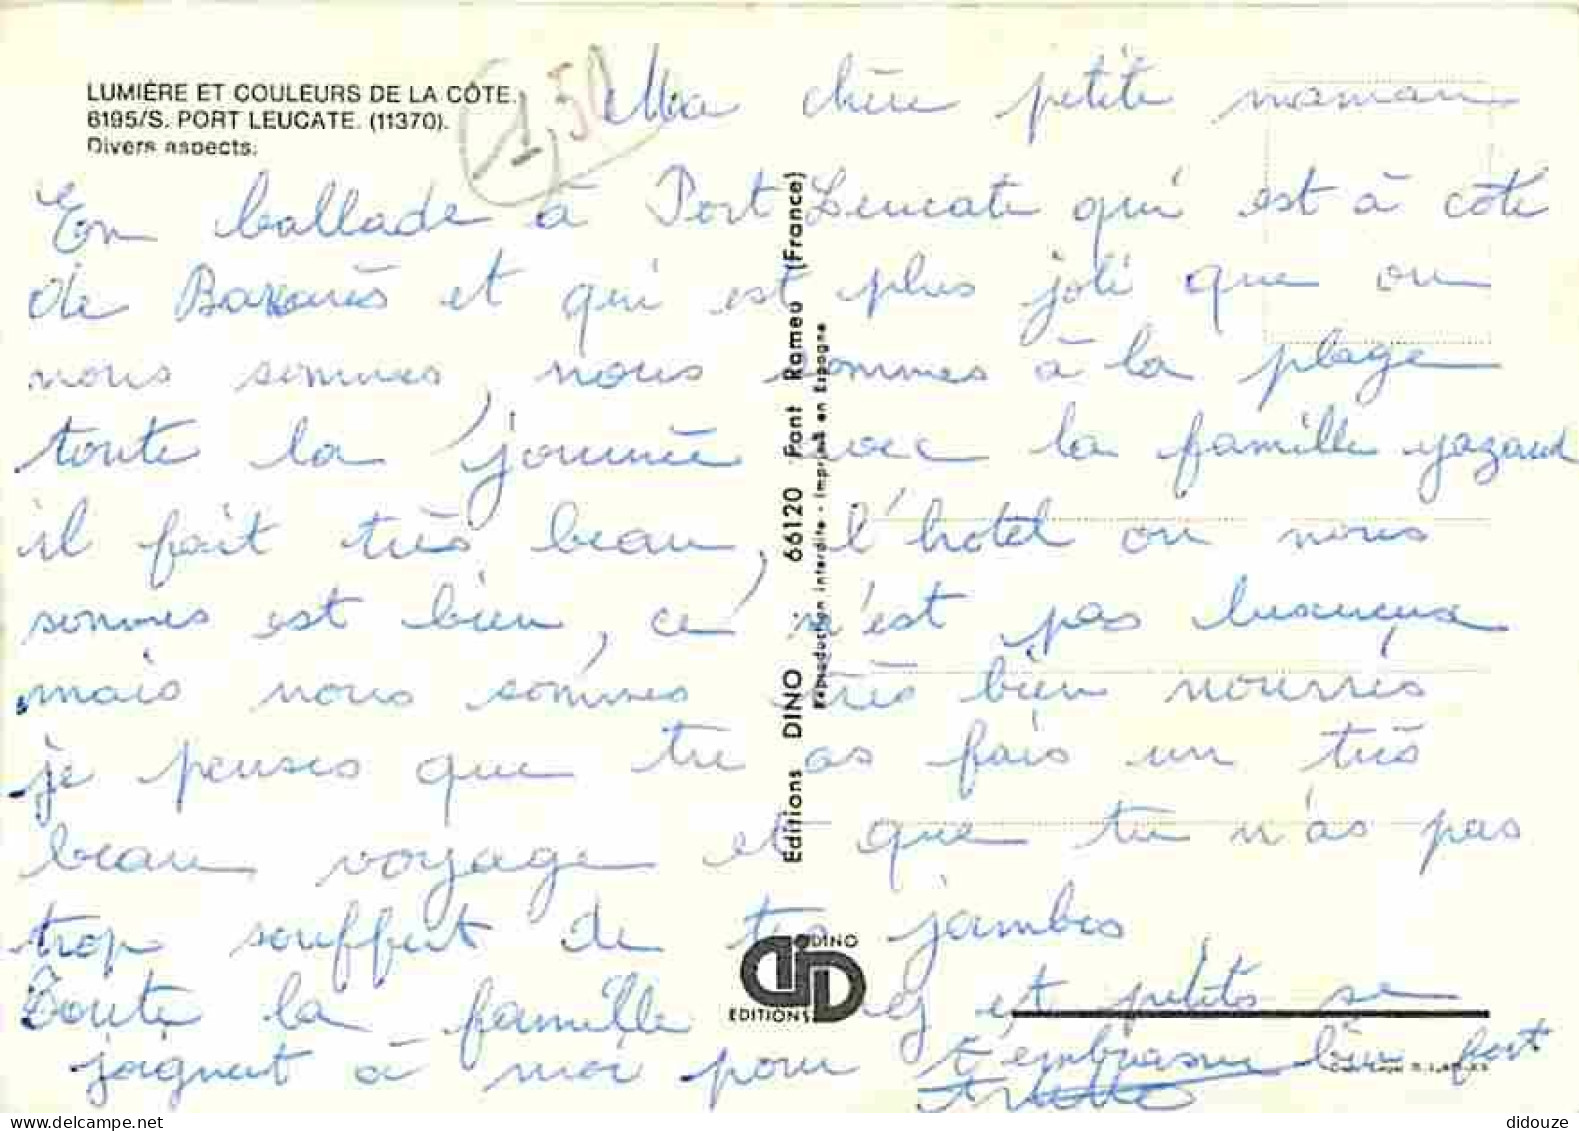 LUMIÈRE ET COULEURS DE LA CÔTE.
6195/S. PORT LEUCATE. (11370).
Divers aspects.
1,50
Ma chère petite maman
En ballade à Port Leucate qui est à côté
de Barcarès et qui est plus joli que ou
nous sommes, nous sommes à la plage
toute la journée avec la famille
il fait très beau, l'hotel ou nous
sommes est bien, ce n'est pas luxueux
mais nous sommes très bien nourris
je penses que tu as fais un très
beau voyage et que tu n'as pas
trop souffert de tes jambes
Toute la famille et petits se
joignent à moi pour t'embrasser bien fort
Editions DINO 66120 Font Romeu (France)
Reproduction interdite - Imprimé en Espagne
DINO
EDITIONS
didouze